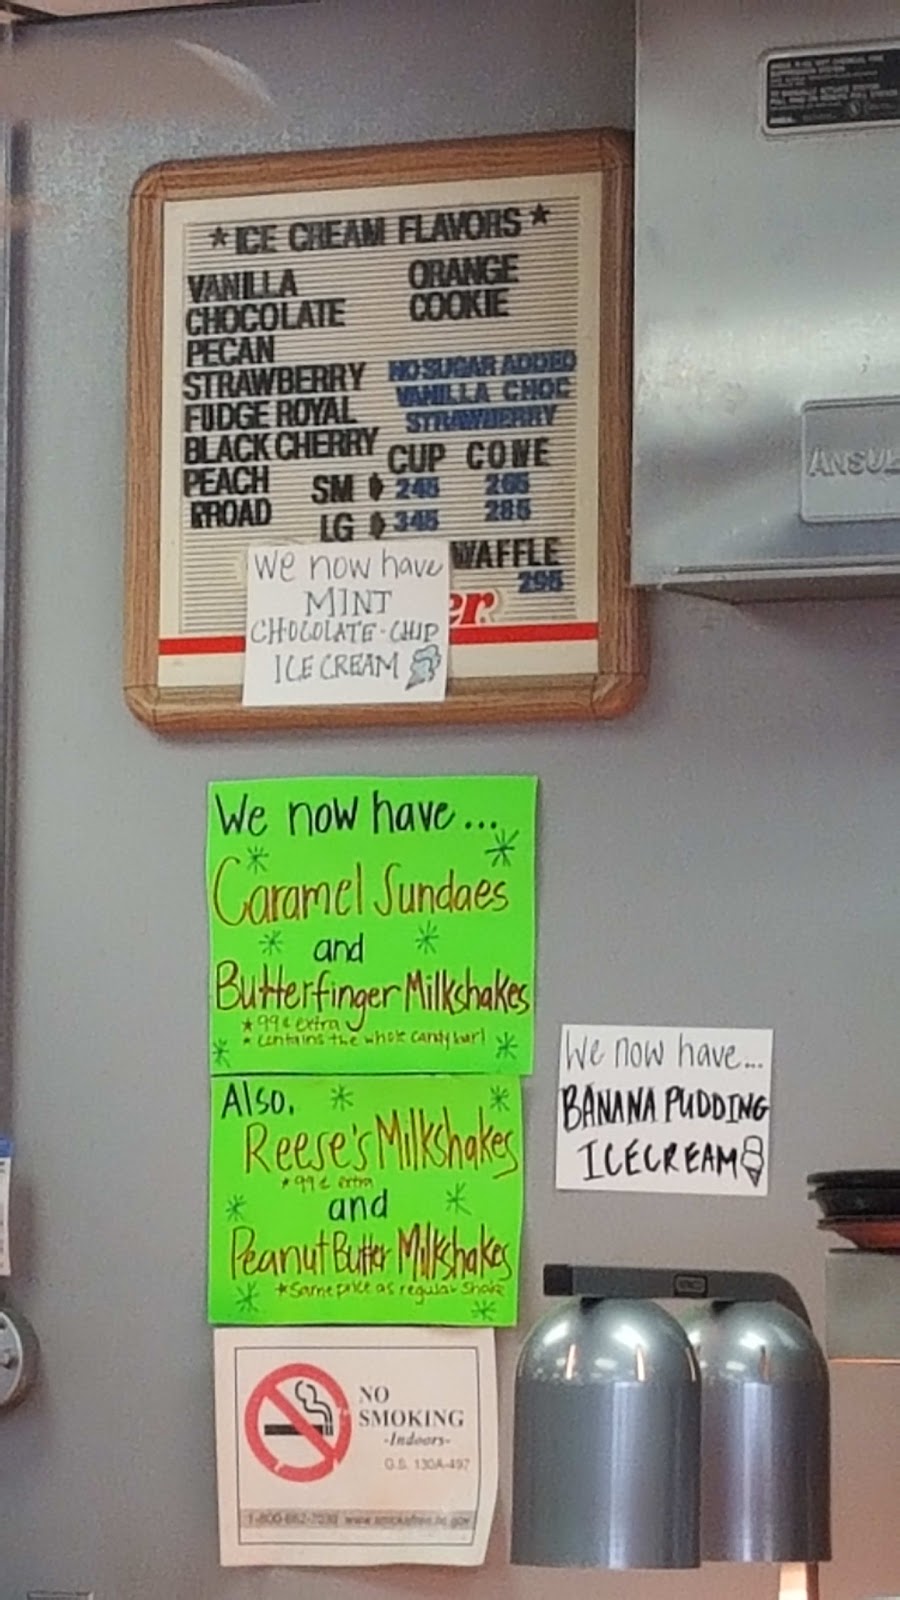 *ICE CREAM FLAVORS*
VANILLA
CHOCOLATE
PECAN
STRAWBERRY
FUDGE ROYAL
BLACK CHERRY
PEACH
RROAD
ORANGE
COOKIE
NO SUGAR ADDED
VANILLA CHOC
STRAWBERRY
CUP CONE
SM 245 265
LG 345 285
WAFFLE
295
We now have
MINT
CHOCOLATE-CHIP
ICE CREAM
er
ANSUL
We now have...
Caramel Sundaes
and
Butterfinger Milkshakes
*99¢ extra
*contains the whole candy bar!
Also,
Reese's Milkshakes
*99¢ extra
and
Peanut Butter Milkshakes
*Same price as regular shake
We now have...
BANANA PUDDING
ICECREAM
NO
SMOKING
-Indoors-
G.S. 130A-497
www.smokefree.nc.gov